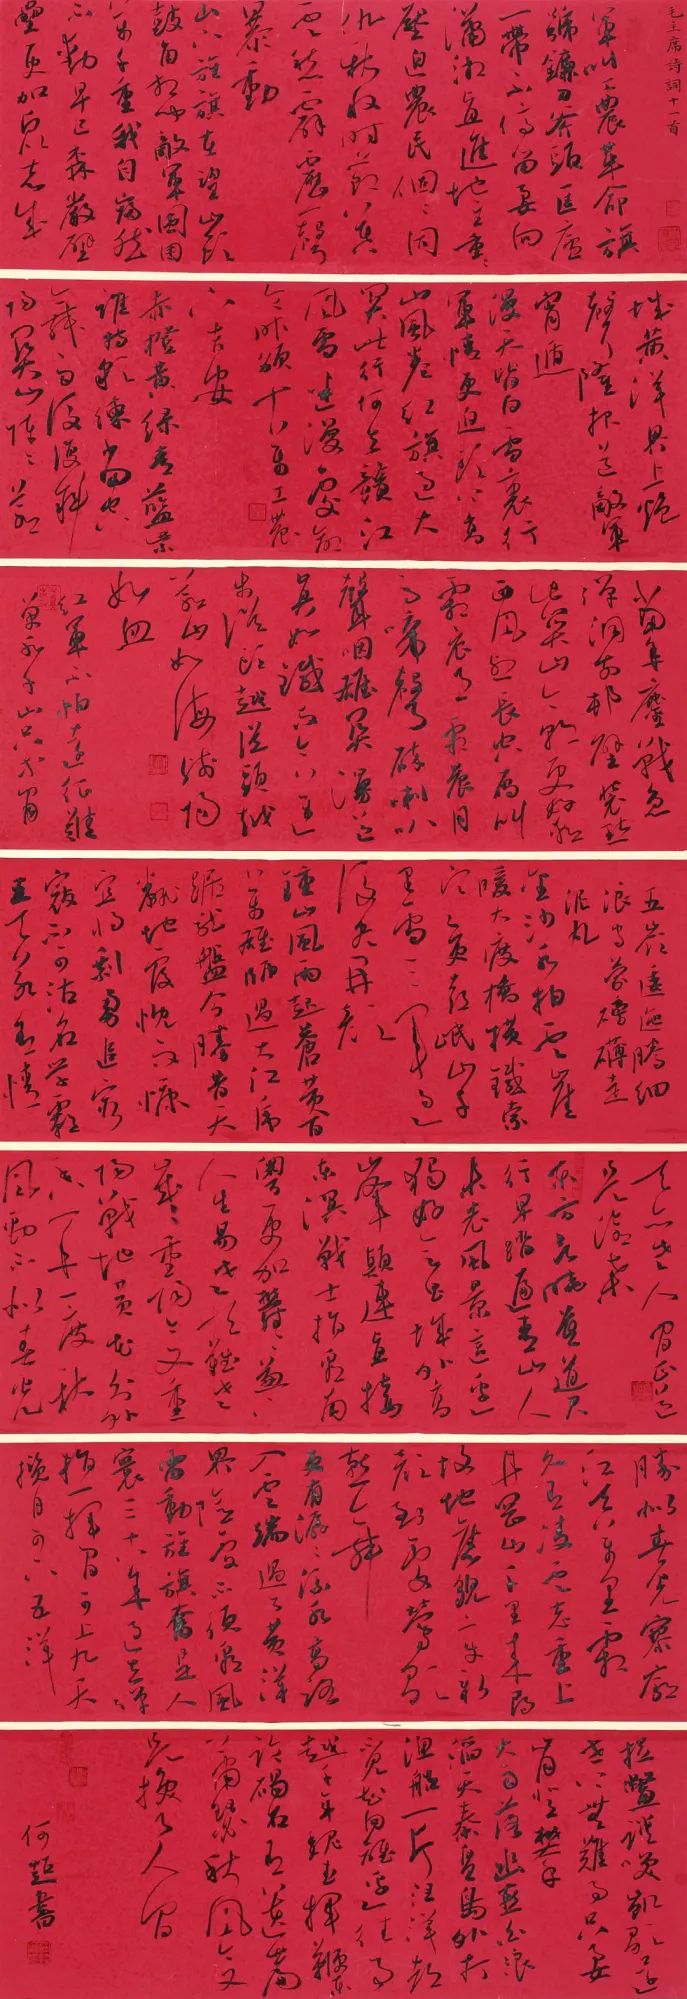 毛主席詩詞十一首
軍叫工農革命旗
號鐮刀斧頭匡廬
一帶不停留要向
瀟湘直進地主重重
壓迫農民個個同
仇秋收時節暮
雲愁霹靂一聲
暴動
山下旌旗在望山頭
鼓角相聞敵軍圍困
萬千重我自巋然
不動早已森嚴壁
壘更加眾志成
城黃洋界上炮
聲隆報道敵軍
宵遁
漫天皆白雪裏行
軍情更迫頭上高
山風卷紅旗過大
關此行何去贛江
風雪迷漫處命
令昨頒十萬工農
下吉安
赤橙黃綠青藍紫
誰持彩練當空
舞雨後復斜
陽關山陣陣蒼
當年鏖戰急
彈洞前村壁裝點
此關山今朝更好看
西風烈長空雁叫
霜晨月霜晨月
馬蹄聲碎喇叭
聲咽雄關漫道
真如鐵而今邁
步從頭越從頭越
蒼山如海殘陽
如血
紅軍不怕遠征難
萬水千山只等閒
五嶺逶迤騰細
浪烏蒙磅礴走
泥丸
金沙水拍雲崖
暖大渡橋橫鐵索
寒更喜岷山千
里雪三軍過
後盡開顏
鐘山風雨起蒼黃百
萬雄師過大江虎
踞龍盤今勝昔天
翻地覆慨而慷
宜將剩勇追窮
寇不可沽名學霸
王天若有情
天亦老人間正道
是滄桑
東方欲曉莫道君
行早踏遍青山人
未老風景這邊
獨好會昌城外高
峰顛連直接
東溟戰士指看南
粵更加鬱鬱蔥蔥
人生易老天難老
歲歲重陽今又重
陽戰地黃花分外
香一年一度秋
風勁不似春光
勝似春光寥廓
江天萬里霜
久有凌雲志重上
井岡山千里來尋
故地舊貌變新
顏到處鶯歌
燕舞
更有潺潺流水高路
入雲端過了黃洋
界險處不須看風
雷動旌旗奮是人
寰三十八年過去彈
指一揮間可上九天
攬月可下五洋
捉鱉談笑凱歌還
世上無難事只要
肯登攀
大雨落幽燕白浪
滔天秦皇島外打
漁船一片汪洋都
不見知向誰邊往事
越千年魏武揮鞭東
臨碣石有遺篇
蕭瑟秋風今又
是換了人間
何超書